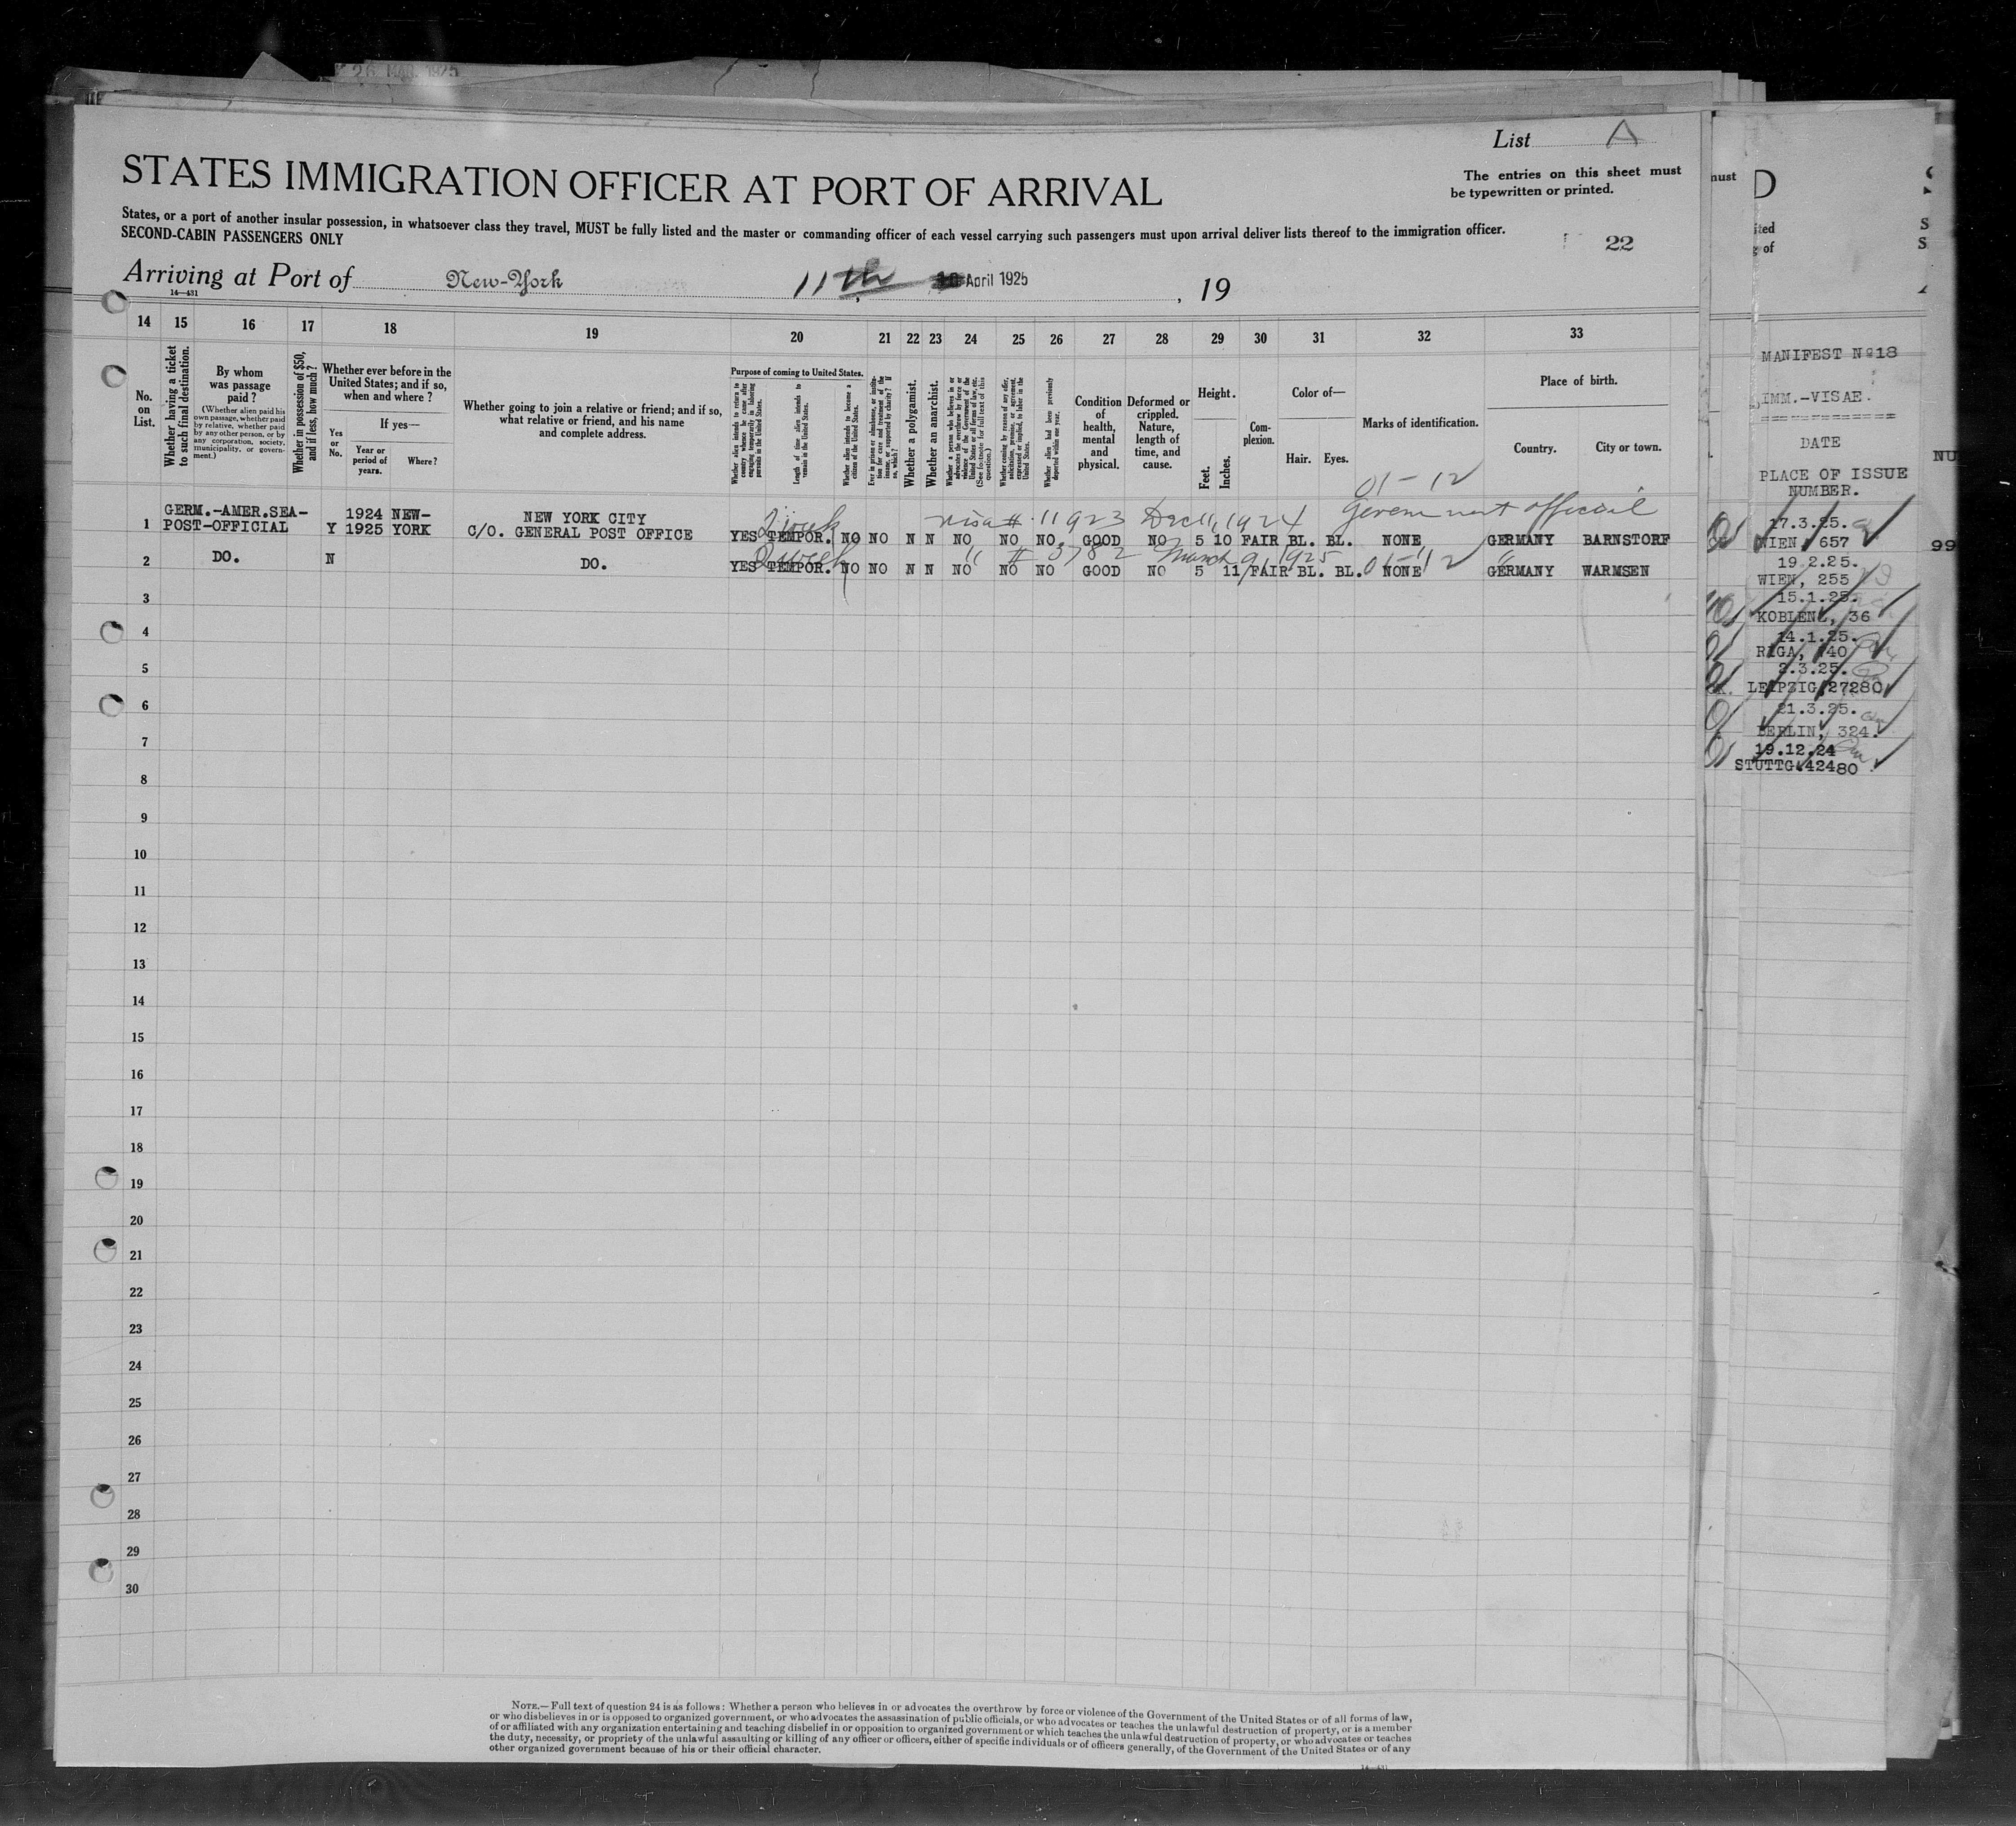 26 MAR. 1925
List A
The entries on this sheet must
be typewritten or printed.
STATES IMMIGRATION OFFICER AT PORT OF ARRIVAL
States, or a port of another insular possession, in whatsoever class they travel, MUST be fully listed and the master or commanding officer of each vessel carrying such passengers must upon arrival deliver lists thereof to the immigration officer.
SECOND-CABIN PASSENGERS ONLY
22
Arriving at Port of New-York 11th April 1925, 19
14—431
14 15 16 17 18 19 20 21 22 23 24 25 26 27 28 29 30 31 32 33
No. on List.
Whether having a ticket to such final destination.
By whom was passage paid?
(Whether alien paid his own passage, whether paid by relative, whether paid by any other person, or by any corporation, society, municipality, or government.)
Whether in possession of $50, and if less, how much?
Whether ever before in the United States; and if so, when and where?
Yes or No.
If yes—
Year or period of years.
Where?
Whether going to join a relative or friend; and if so, what relative or friend, and his name and complete address.
Purpose of coming to United States.
Whether alien intends to return to country whence he came after engaging temporarily in laboring pursuits in the United States.
Length of time alien intends to remain in the United States.
Whether alien intends to become a citizen of the United States.
Ever in prison or almshouse, or institution for care and treatment of the insane, or supported by charity? If so, which?
Whether a polygamist.
Whether an anarchist.
Whether a person who believes in or advocates the overthrow by force or violence of the Government of the United States or all forms of law, etc. (See footnote for full text of this question.)
Whether coming by reason of any offer, solicitation, promise, or agreement, expressed or implied, to labor in the United States.
Whether alien had been previously deported within one year.
Condition of health, mental and physical.
Deformed or crippled. Nature, length of time, and cause.
Height.
Feet.
Inches.
Complexion.
Color of—
Hair. Eyes.
Marks of identification.
Place of birth.
Country. City or town.
01-12
visa # 11923 Dec 11, 1924 Government official
1 GERM.-AMER.SEA-POST-OFFICIAL Y 1924 1925 NEW-YORK NEW YORK CITY C/O. GENERAL POST OFFICE YES 2 week TEMPOR. NO NO N N NO NO NO GOOD NO 5 10 FAIR BL. BL. NONE GERMANY BARNSTORF
" # 3782 March 9, 1925 01-12 "
2 DO. N DO. YES 2 week TEMPOR. NO NO N N NO NO NO GOOD NO 5 11 FAIR BL. BL. NONE GERMANY WARMSEN
3
4
5
6
7
8
9
10
11
12
13
14
15
16
17
18
19
20
21
22
23
24
25
26
27
28
29
30
NOTE.—Full text of question 24 is as follows: Whether a person who believes in or advocates the overthrow by force or violence of the Government of the United States or of all forms of law,
or who disbelieves in or is opposed to organized government, or who advocates the assassination of public officials, or who advocates or teaches the unlawful destruction of property, or is a member
of or affiliated with any organization entertaining and teaching disbelief in or opposition to organized government or which teaches the unlawful destruction of property, or who advocates or teaches
the duty, necessity, or propriety of the unlawful assaulting or killing of any officer or officers, either of specific individuals or of officers generally, of the Government of the United States or of any
other organized government because of his or their official character.
14—431
must
D
ited
g of
S
S
MANIFEST Nº18
IMM.-VISAE.
DATE
PLACE OF ISSUE
NUMBER.
NU
17.3.25.
WIEN, 657
99
19.2.25.
WIEN, 255
15.1.25.
KOBLENZ, 36
14.1.25.
RIGA, 140
2.3.25.
LEIPZIG,27280
21.3.25.
BERLIN, 324.
19.12.24
STUTTG.42480